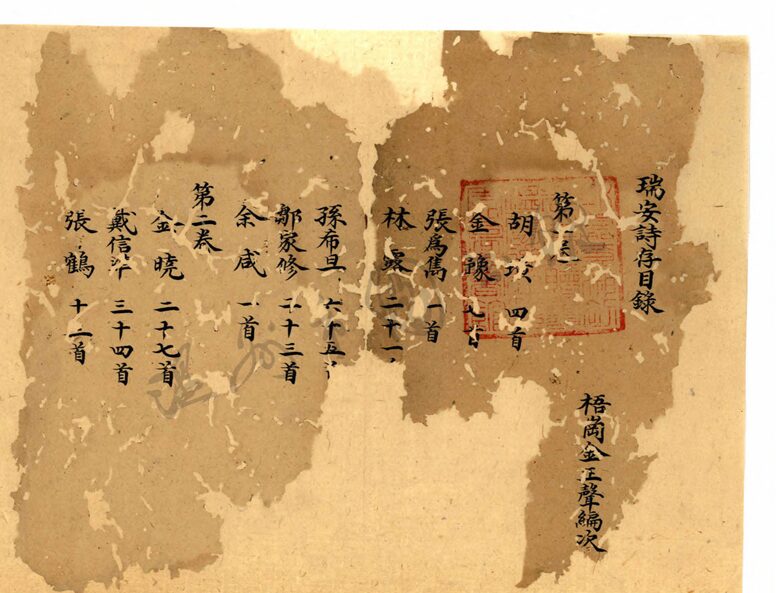 瑞安詩存目錄
梧岡金玉聲編次
第一卷
胡 四首
金豫 七首
張為儁 首
林 二十一
孫希旦 六十五
鄒家修 二十三首
余咸 一首
第二卷
金曉 二十七首
戴信 三十四首
張鶴 十二首